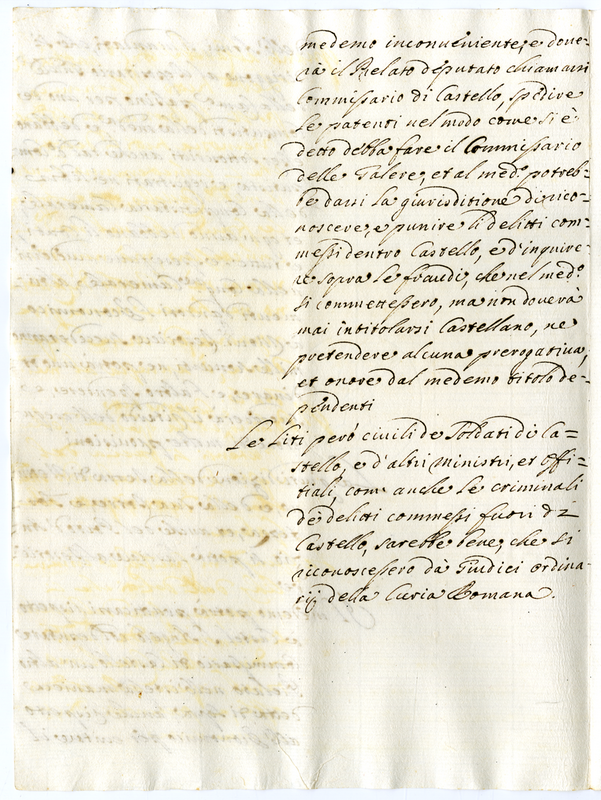 medemo inconueniente, e doue=
rà il Prelato deputato chiamarsi
Commissario di Castello, spedire
le patenti nel modo come si è
detto debba fare il Commissario
delle Galere, et al med.º potreb=
be darsi la giurisditione di rico=
noscere, e punire li delitti com=
messi dentro Castello, e d'inquire=
re sopra le fraudi, che nel med.º
si commettessero, ma non douerà
mai intitolarsi Castellano, ne
pretendere alcuna prerogatiua,
et onore dal medemo titolo de=
pendenti
Le Liti però ciuili de Soldati di Ca=
stello, e d'altri ministri, et Offi=
tiali, com anche le criminali
de delitti commessi fuori di
Castello, sarebbe bene, che si
riconoscessero da Giudici ordina=
rij della Curia Romana.